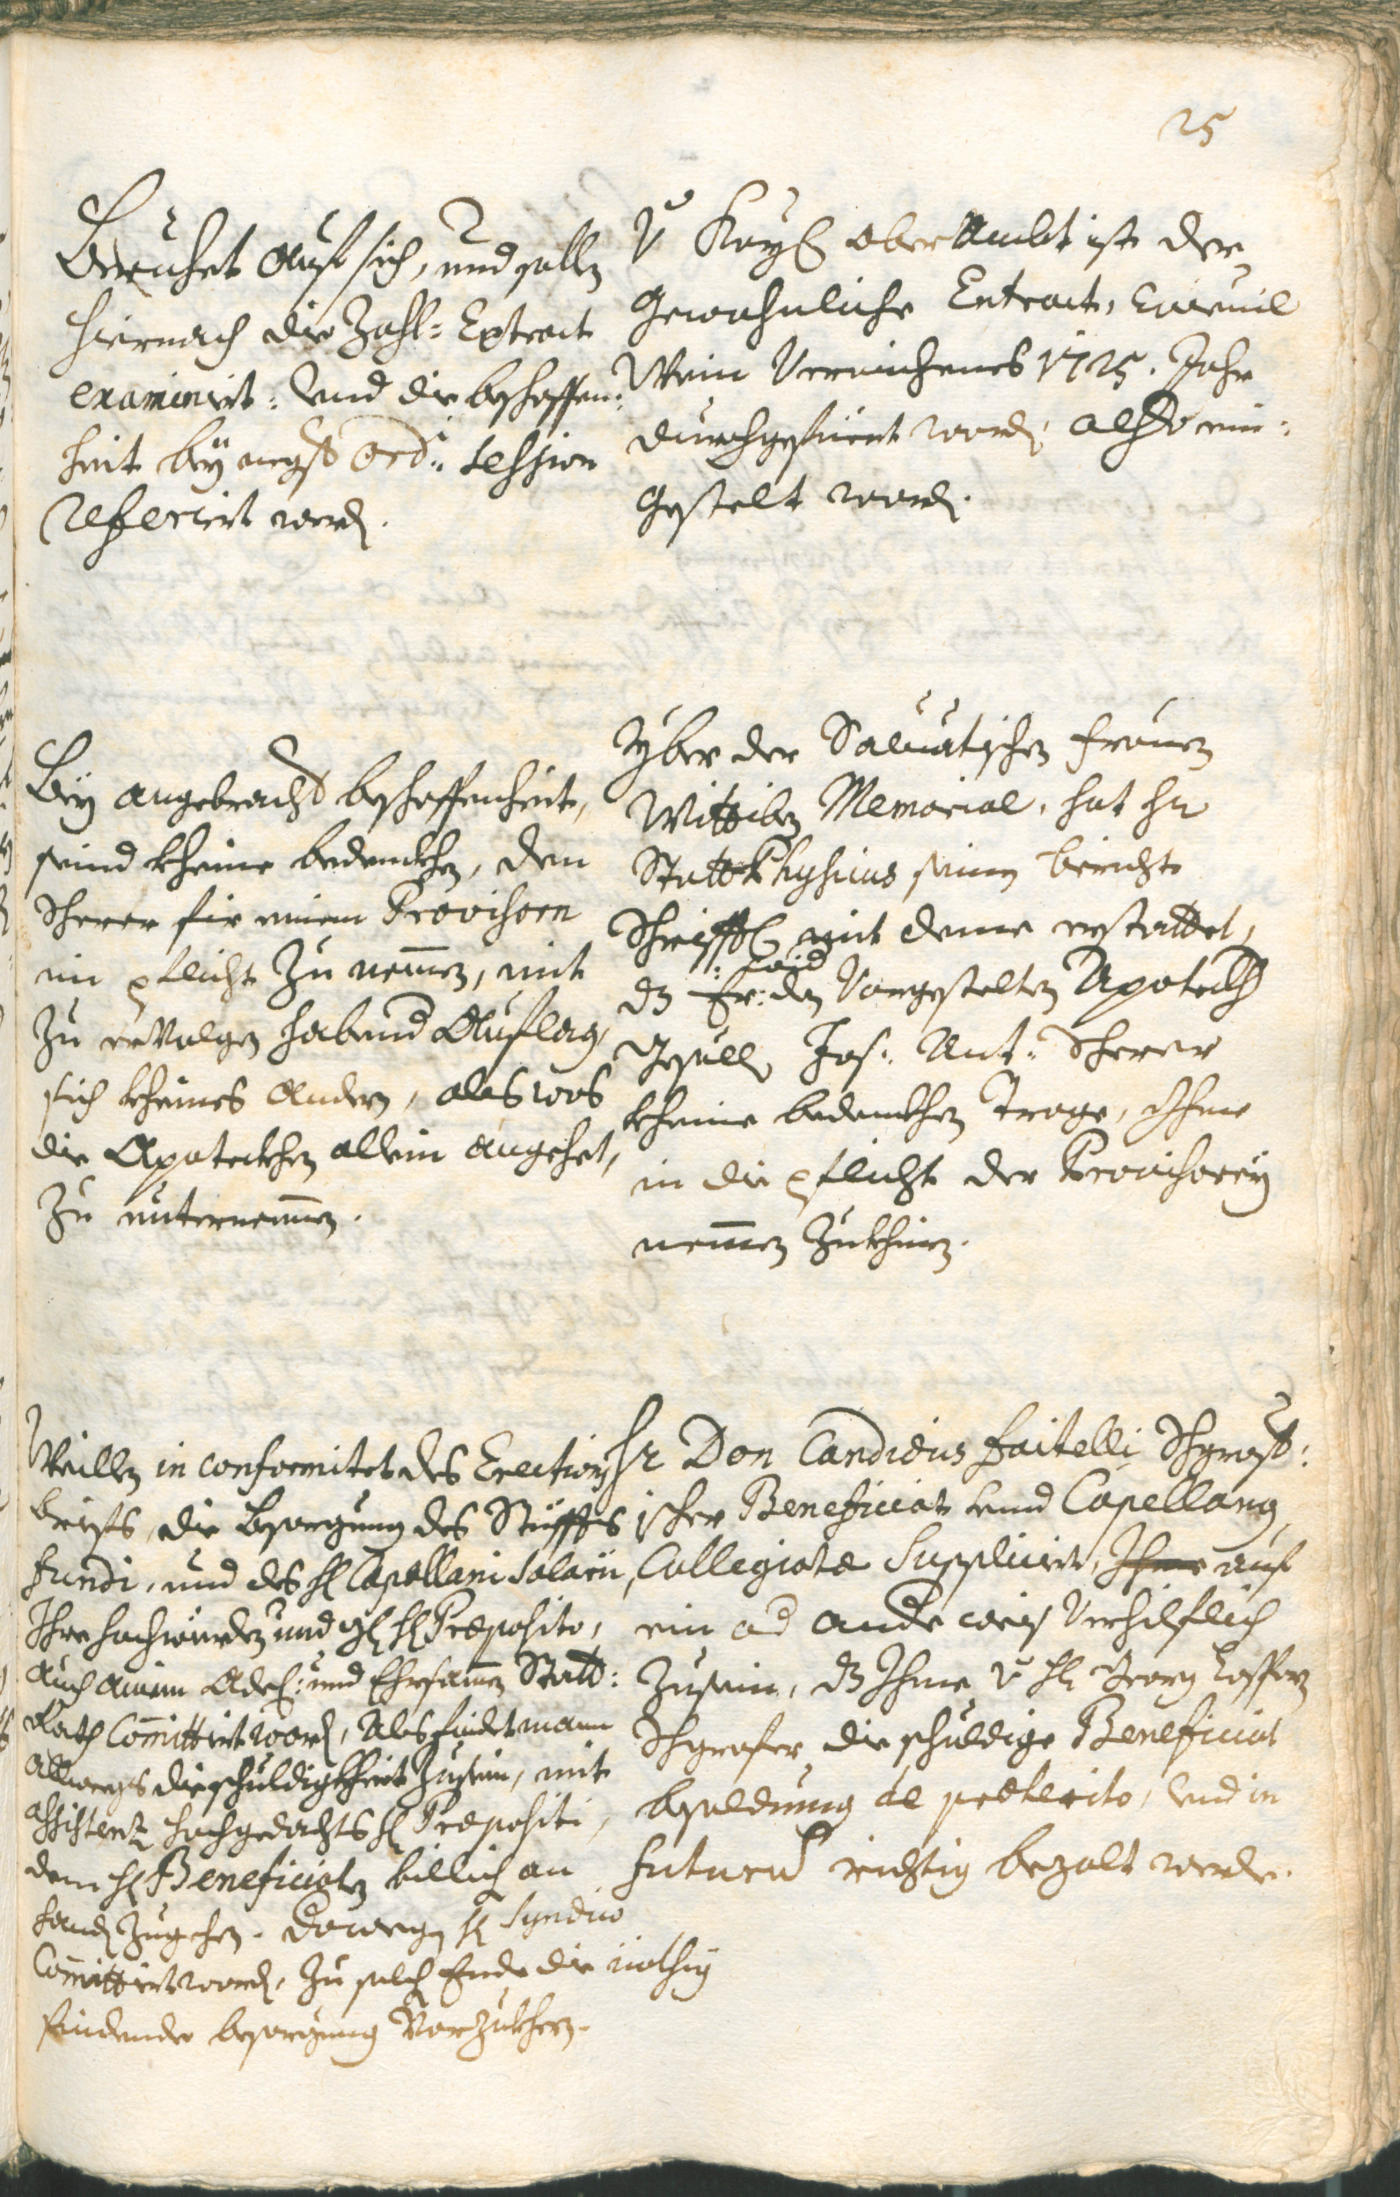 25
Beruhet Auf sich, und sollen
hiernach die Zahl: Extract
examinirt: Und die beschaffen:
heit bey negst Ord: Session
Referirt werden.
v Kayl: Ober Ambt ist der
Gewohnliche Extract,
Wein Verwichenes 1725. Jahr
durchgefüert worden, also ein:
Gestelt worden.
Bey angebracht beschaffenheit,
seind kheine bedenckhen, den
Scherer für einem Provisorn
in pflicht Zu nemmen, mit
Zu ervolgen habend Auflag,
sich kheines Andern, als was
die Apoteckhen allein angehet,
Zu unternemmen.
Yber der Frauen
Wittiben Memorial, hat Hr
Statt Physicus seinen bericht
Schrifftl: mit deme erstattet,
dz Er: den Vorgestelten Apoteckh
Gsell Jos: Ant: Scherer
kheine bedenckhen Trage, Ihne
in die pflicht der Provisorey
nemmen Zukhinen.
Weillen in conformitet des Erections
briefs, die Besorgung des Stüffts
fundi, und des H: Capellani Salarii,
Ihro hochwürden und H: Præposito,
Auch ainem Adel: und Ehrsamen Statt:
Rath Committirt worden, Als findet mann
allwegs die schuldigkheit Zusein, mit
assistenz hochgedachts H: Præpositi,
dem H: Beneficiaten billich an
handen Zugehen. Derowegen H: Syndico
Committirt worden, Zu solchem Ende die nöthig
findende besorgung Vorzukheren.
Hr Don Candidus Faitelli
ischer Beneficiat und Capellan
Collegiatæ Supplicirt, Ihme auf
ein ad andere weis Verhilflich
Zusein, dz Ihme v H: Georg
die schuldige Beneficiat
besoldung de præterito, und in
futurum richtig bezalt werde.